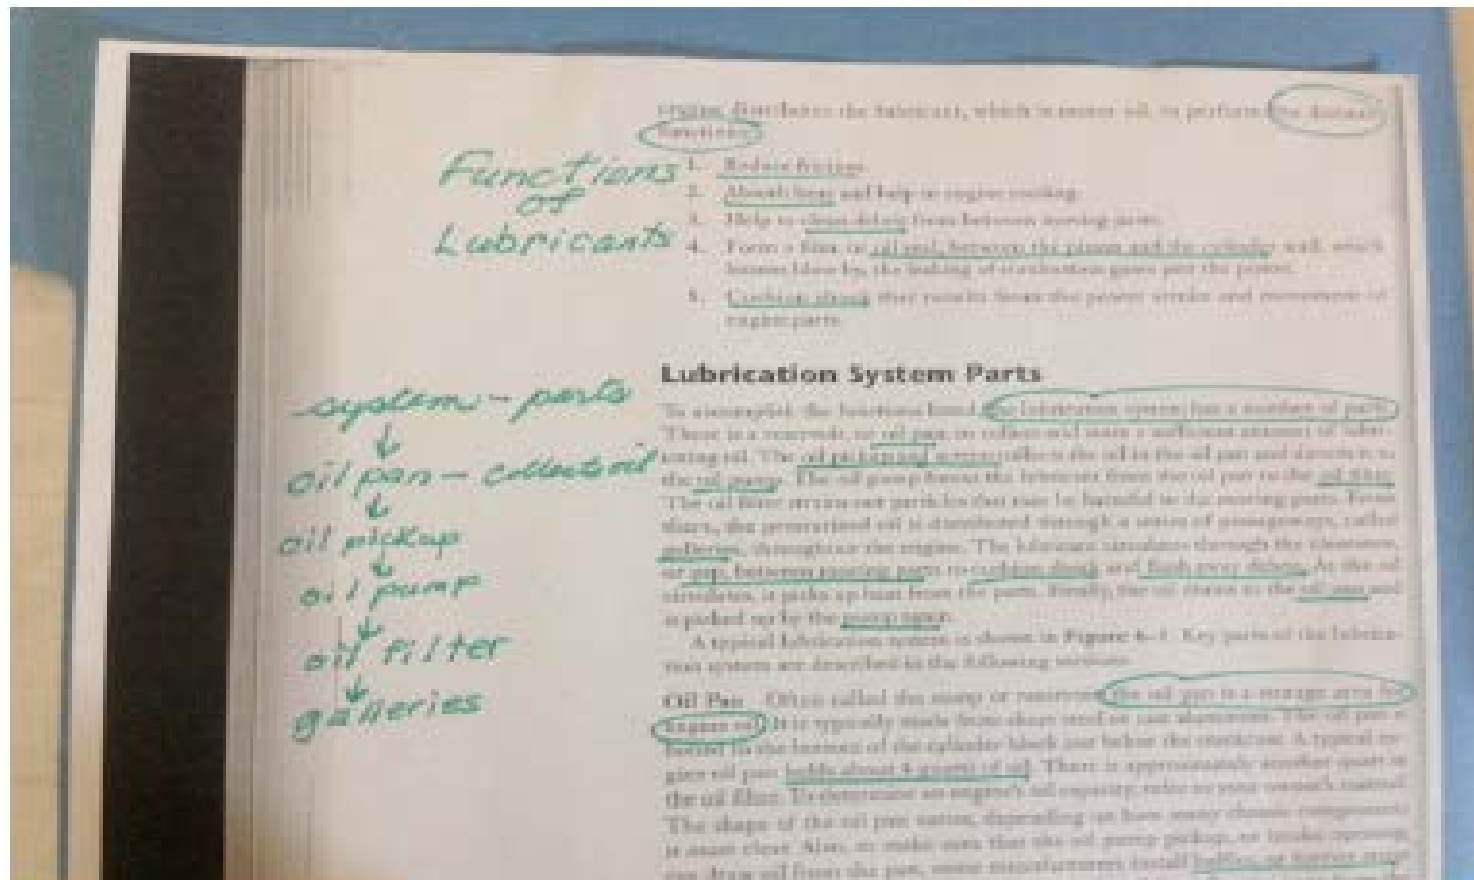 engine, distributes the lubricant, which is motor oil, to perform
functions:
Functions
of
Lubricants
1. Reduce friction.
2. Absorb heat and help in engine cooling.
3. Help to clean debris from between moving parts.
4. Form a film, or oil seal, between the piston and the cylinder wall, which
the leaking of combustion gases past the piston.
5. Cushion shock that results from the power stroke and movement of
engine parts.
Lubrication System Parts
system - parts
oil pan - collects oil
oil pickup
oil pump
oil filter
galleries
To accomplish the functions listed, the lubrication system has a number of parts.
There is a reservoir, or oil pan, to collect and store a sufficient amount of lubri-
cating oil. The oil pickup and screen collects the oil in the oil pan and directs it to
the oil pump. The oil pump forces the lubricant from the oil pan to the oil filter.
The oil filter strains out particles that may be harmful to the moving parts. From
there, the pressurized oil is distributed through a series of passageways, called
galleries, throughout the engine. The lubricant circulates through the clearance,
or gap, between moving parts to cushion shock and flush away debris. As the oil
circulates, it picks up heat from the parts. Finally, the oil drains to the oil pan and
is picked up by the pump again.
A typical lubrication system is shown in Figure 6-1. Key parts of the lubrica-
tion system are described in the following sections.
Oil Pan Often called the sump or reservoir, the oil pan is a storage area for
engine oil. It is typically made from sheet steel or cast aluminum. The oil pan is
to the bottom of the cylinder block just below the crankcase. A typical en-
gine oil pan holds about 4 quarts of oil. There is approximately another quart in
the oil filter. To determine an engine's oil capacity, refer to your owner's manual.
The shape of the oil pan varies, depending on how many chassis components
it must clear. Also, to make sure that the oil pump pickup, or
can draw oil from the pan, some manufacturers install baffles, or